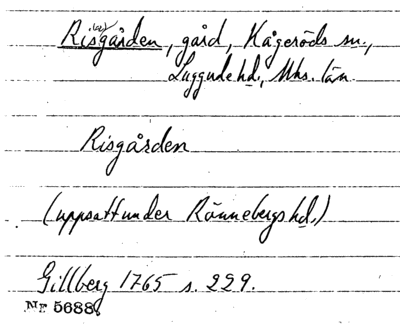 Risgården, gård, Kågeröds sn.,
Luggude hd., Mhs. län
Risgården
(uppsatt under Rönnebergs hd.)
Gillberg 1765 s. 229.
Nr 5688